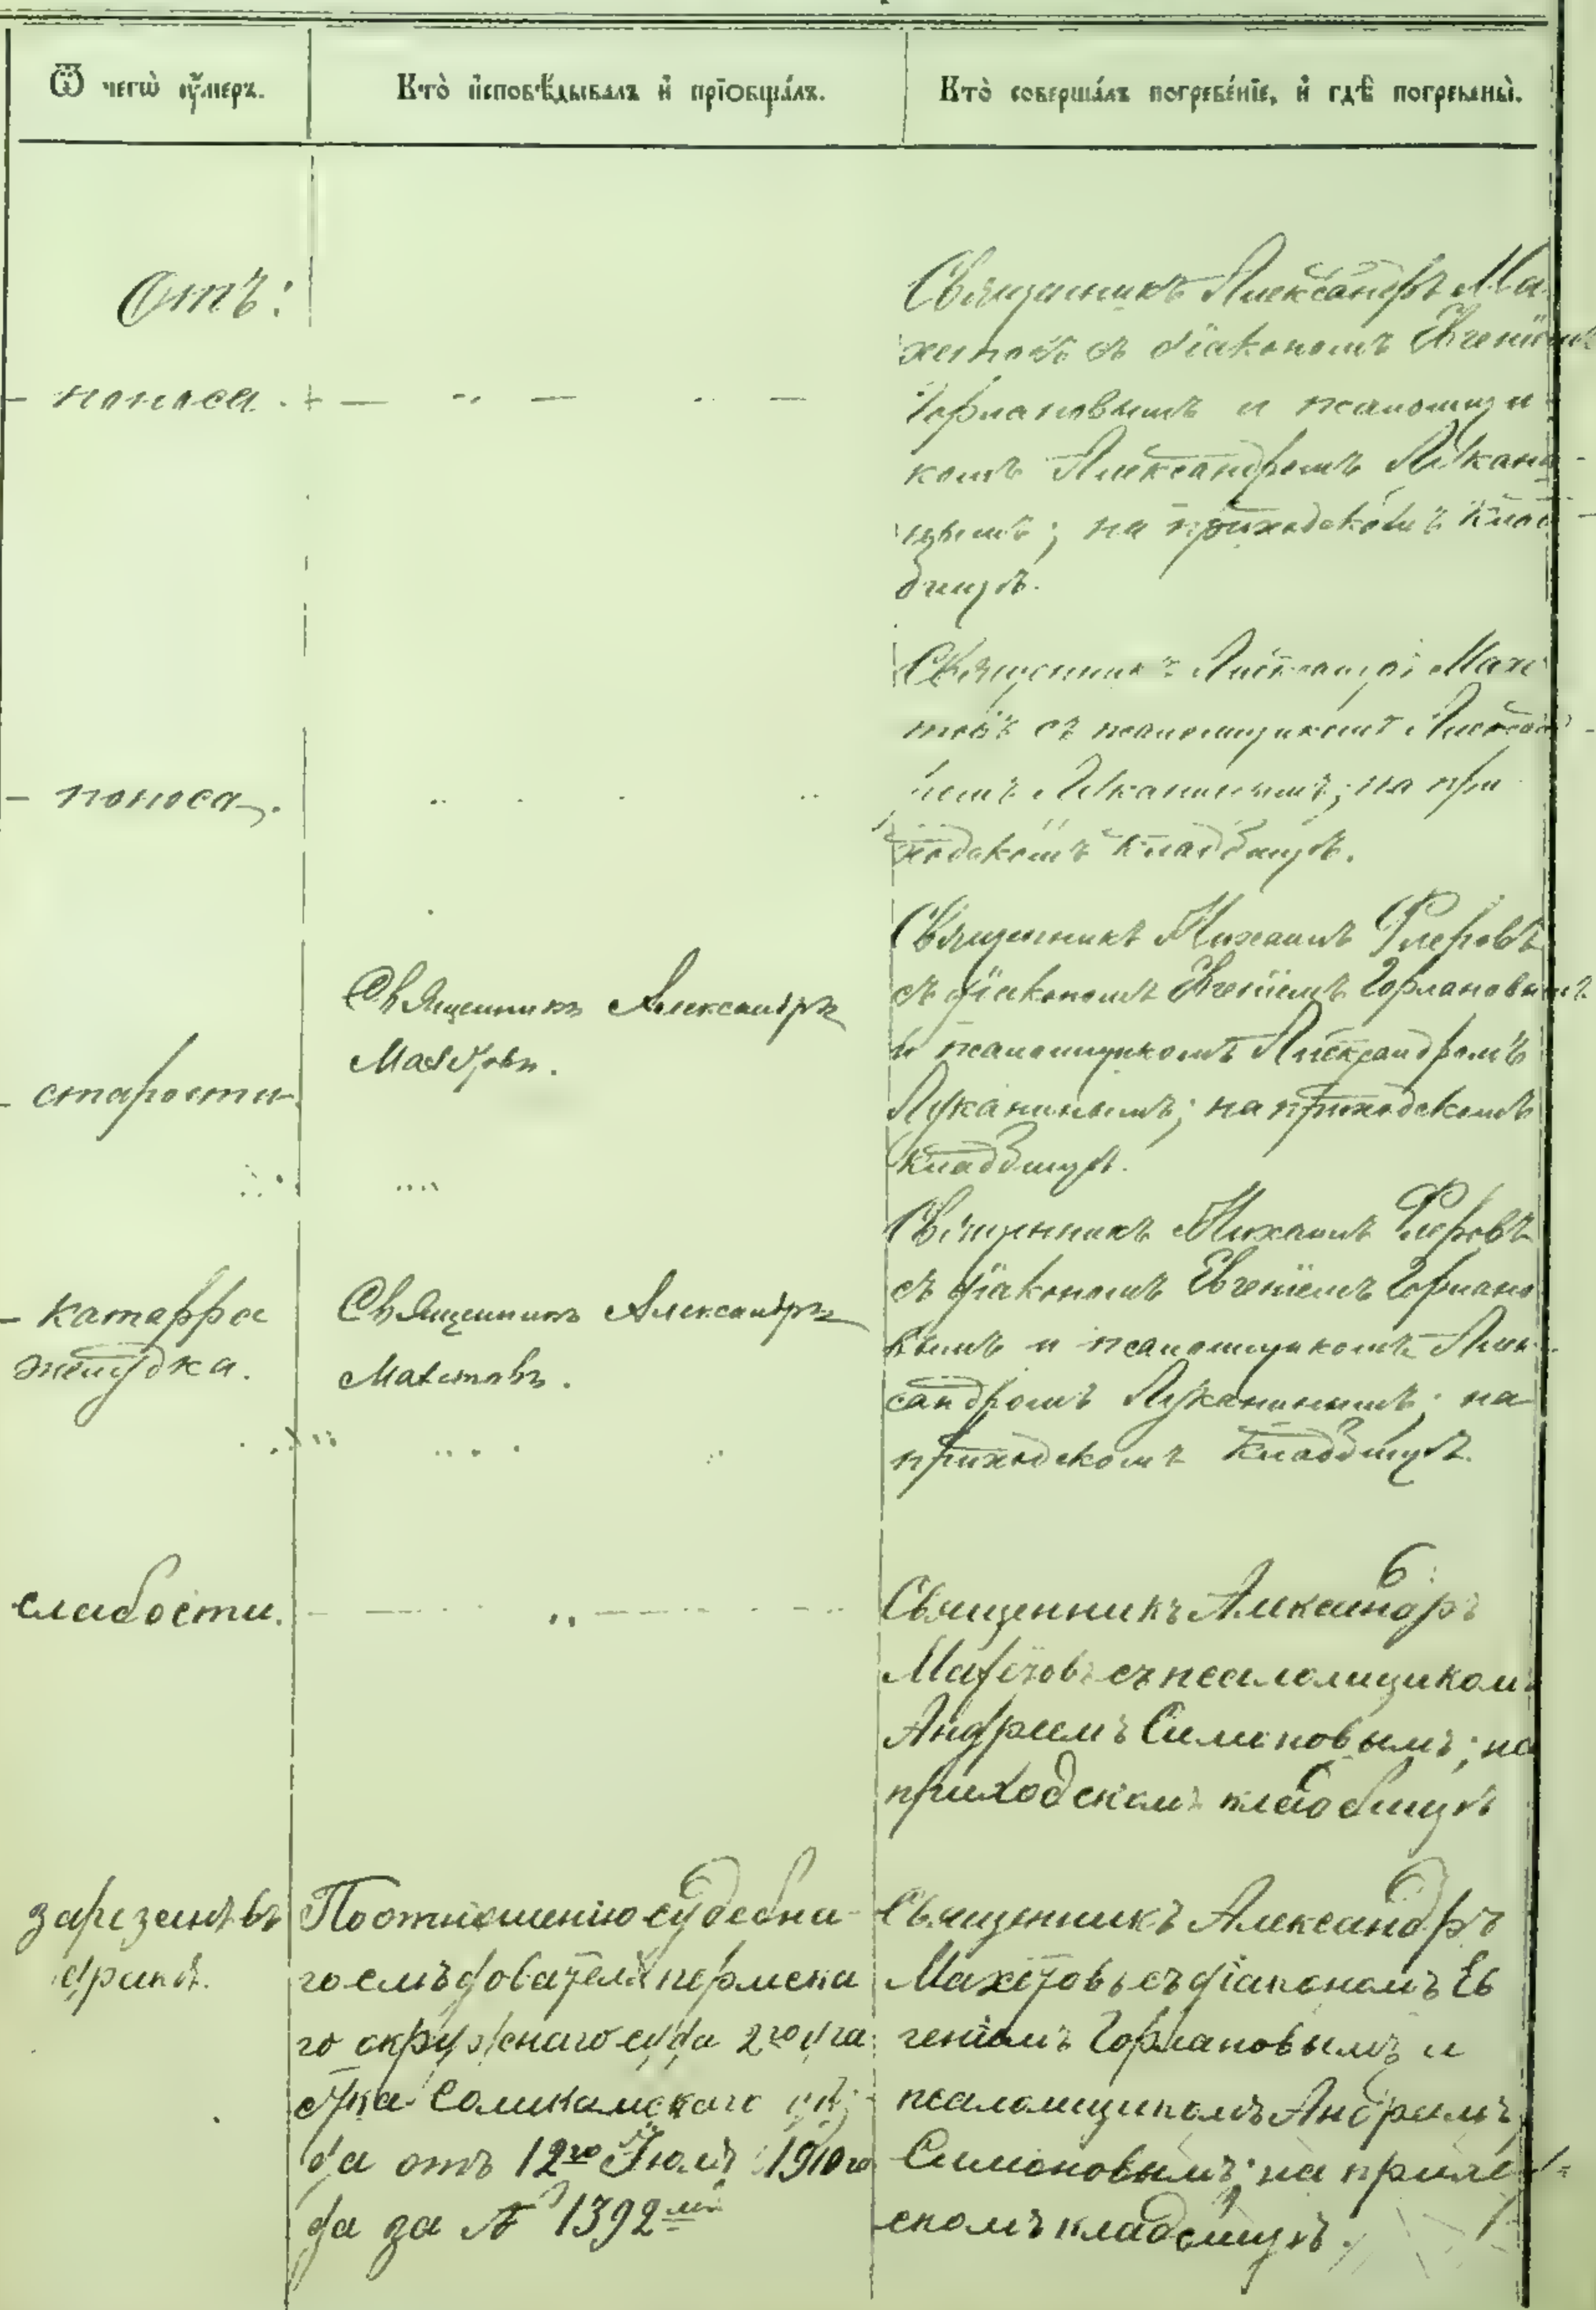 Ѿ чегѡ ᲂу҆́меръ.
Кто̀ и҆сповѣ́дывалъ и҆ прїѡбща́лъ.
Кто̀ соверша́лъ погребе́нїе, и҆ гдѣ̀ погребены̀.
Отъ:
Священникъ Александръ Ма
хетовъ съ діакономъ Евгеніемъ
Горлановымъ и псаломщи
комъ Александромъ Лукани
нымъ; на приходскомъ клад
бищѣ.
– поноса.
Священникъ Александръ Махе
товъ съ псаломщикомъ Александ
ромъ Луканинымъ; на при
ходскомъ кладбищѣ.
– поноса.
Священникъ Михаилъ Флеровъ
съ діакономъ Евгеніемъ Горлановымъ
и псаломщикомъ Александромъ
Луканинымъ; на приходскомъ
кладбищѣ.
– старости.
Священникъ Александръ
Махетовъ.
Священникъ Михаилъ Флеровъ
съ діакономъ Евгеніемъ Горлано
вымъ и псаломщикомъ Алек
сандромъ Луканинымъ; на
приходскомъ кладбищѣ.
– катарра
желудка.
Священникъ Александръ
Махетовъ.
слабости.
Священникъ Александръ
Махетовъ съ псаломщикомъ
Андреемъ Симоновымъ; на
приходскомъ кладбищѣ
зарезанъ въ
дракѣ.
По отношенію судебна
го слѣдователя пермска
го окружнаго суда 2го уча
стка Соликамскаго уѣз
да отъ 12го Іюля 1910 го
да за № 1392мъ
Священникъ Александръ
Махетовъ съ діакономъ Ев
геніемъ Горлановымъ и
псаломщикомъ Андреемъ
Симоновымъ; на приход
скомъ кладбищѣ.